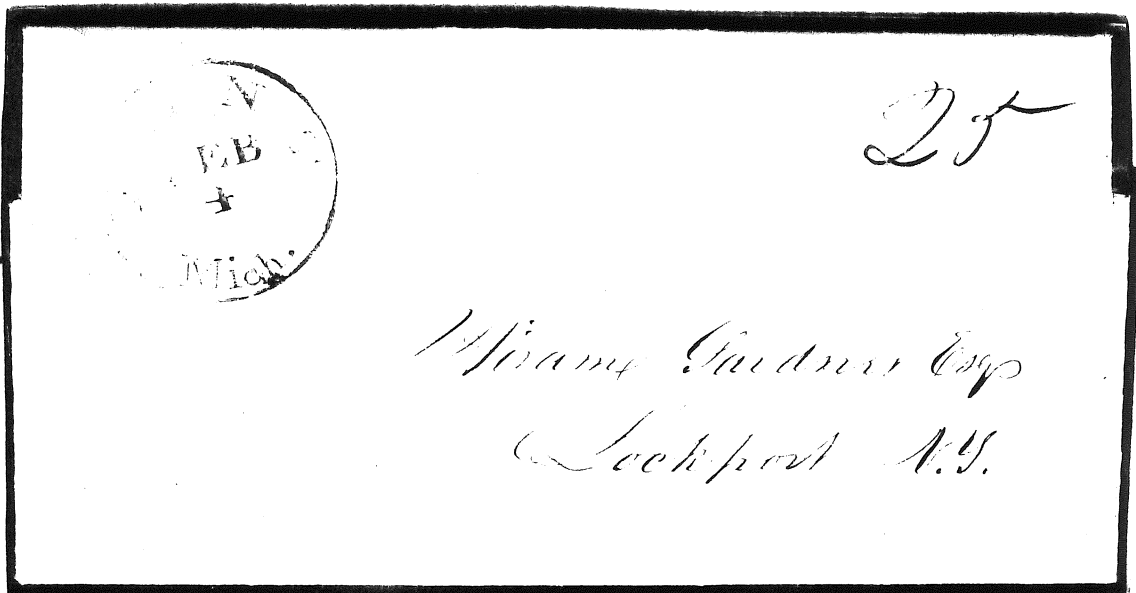 EB
4
Mich.
25
Hiram Gardner Esq
Lockport N.Y.